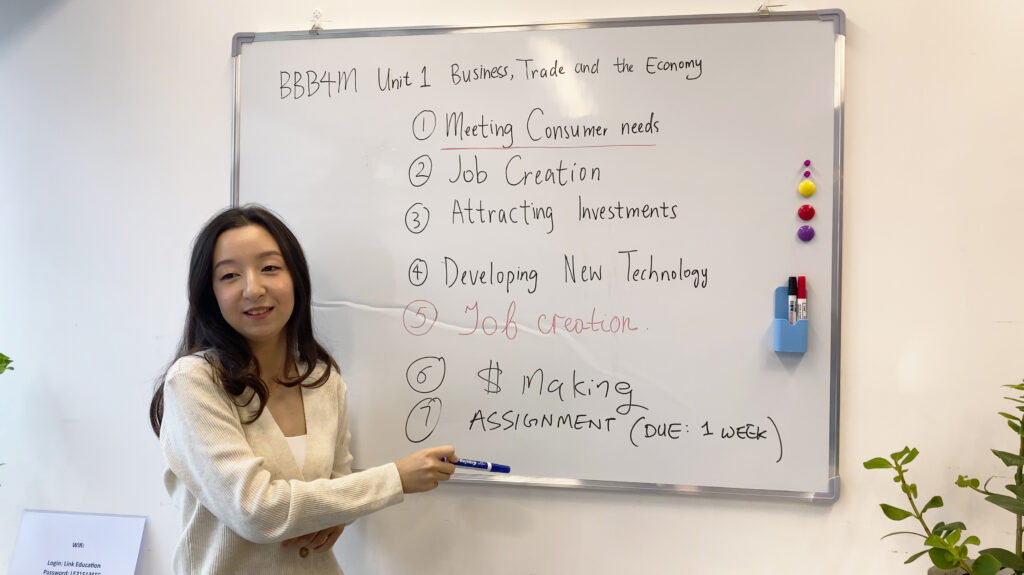 BBB4M Unit 1 Business, Trade and the Economy
① Meeting Consumer needs
② Job Creation
③ Attracting Investments
④ Developing New Technology
⑤ Job creation.
⑥ $ Making
⑦ ASSIGNMENT (DUE: 1 WEEK)
Wifi:
Login: Link Education
Password: